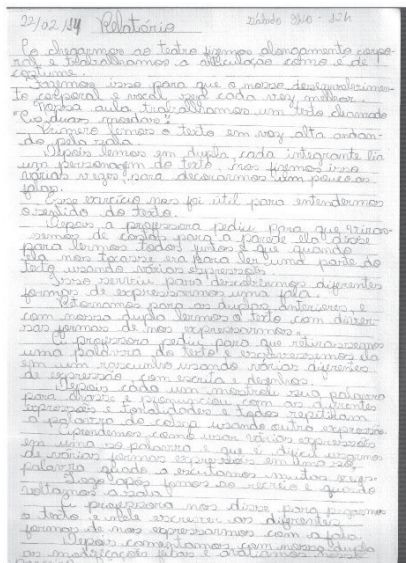 22/02/14 Relatório Sábado 9h0 - 12h
Ao chegarmos ao teatro fizemos alongamento corpo-
ral e trabalhamos a articulação como é de
costume.
Fazemos isso para que o nosso desenvolvimen-
to corporal e vocal seja cada vez melhor.
Nessa aula trabalhamos um texto chamado
Primeiro lemos o texto em voz alta andan-
do pela sala.
Depois lemos em dupla, cada integrante lia
um personagem do texto, nos fizemos isso
várias vezes, para decorarmos um pouco as
falas.
Esse exercício nos foi útil para entendermos
o sentido do texto.
Depois a professora pediu para que ficas-
semos de costas para a parede ela disse
para lermos todos juntos e que quando
ela nos tocasse era para ler uma parte do
texto usando várias expressões.
Isso serviu para descobrirmos diferentes
formas de expressarmos uma fala.
Retornamos para as duplas anteriores, e
com nossa dupla lermos o texto com diver-
sas formas de nos expressarmos.
A professora pediu para que retirassemos
uma palavra do texto e escrevessemos ela
em um rascunho usando várias diferentes
de expressão, com escrita e desenhos.
Depois cada um mostrou sua palavra
para classe e pronunciou com as diferentes
expressões e tonalidades e todos repetiram
a palavra do colega usando outra expressão.
Aprendemos como usar várias expressões
em uma só palavra e que é difícil usarmos
de várias formas expressões em uma só
palavra quando a escutamos muitas vezes.
Logo após fomos ao recreio e quando
voltamos a sala
A professora nos disse para pegarmos
o texto, e nele escrever as diferentes
formas de nos expressarmos com a fala.
Depois comentamos com nossa dupla
as modificações feitas e avaliamos nosso